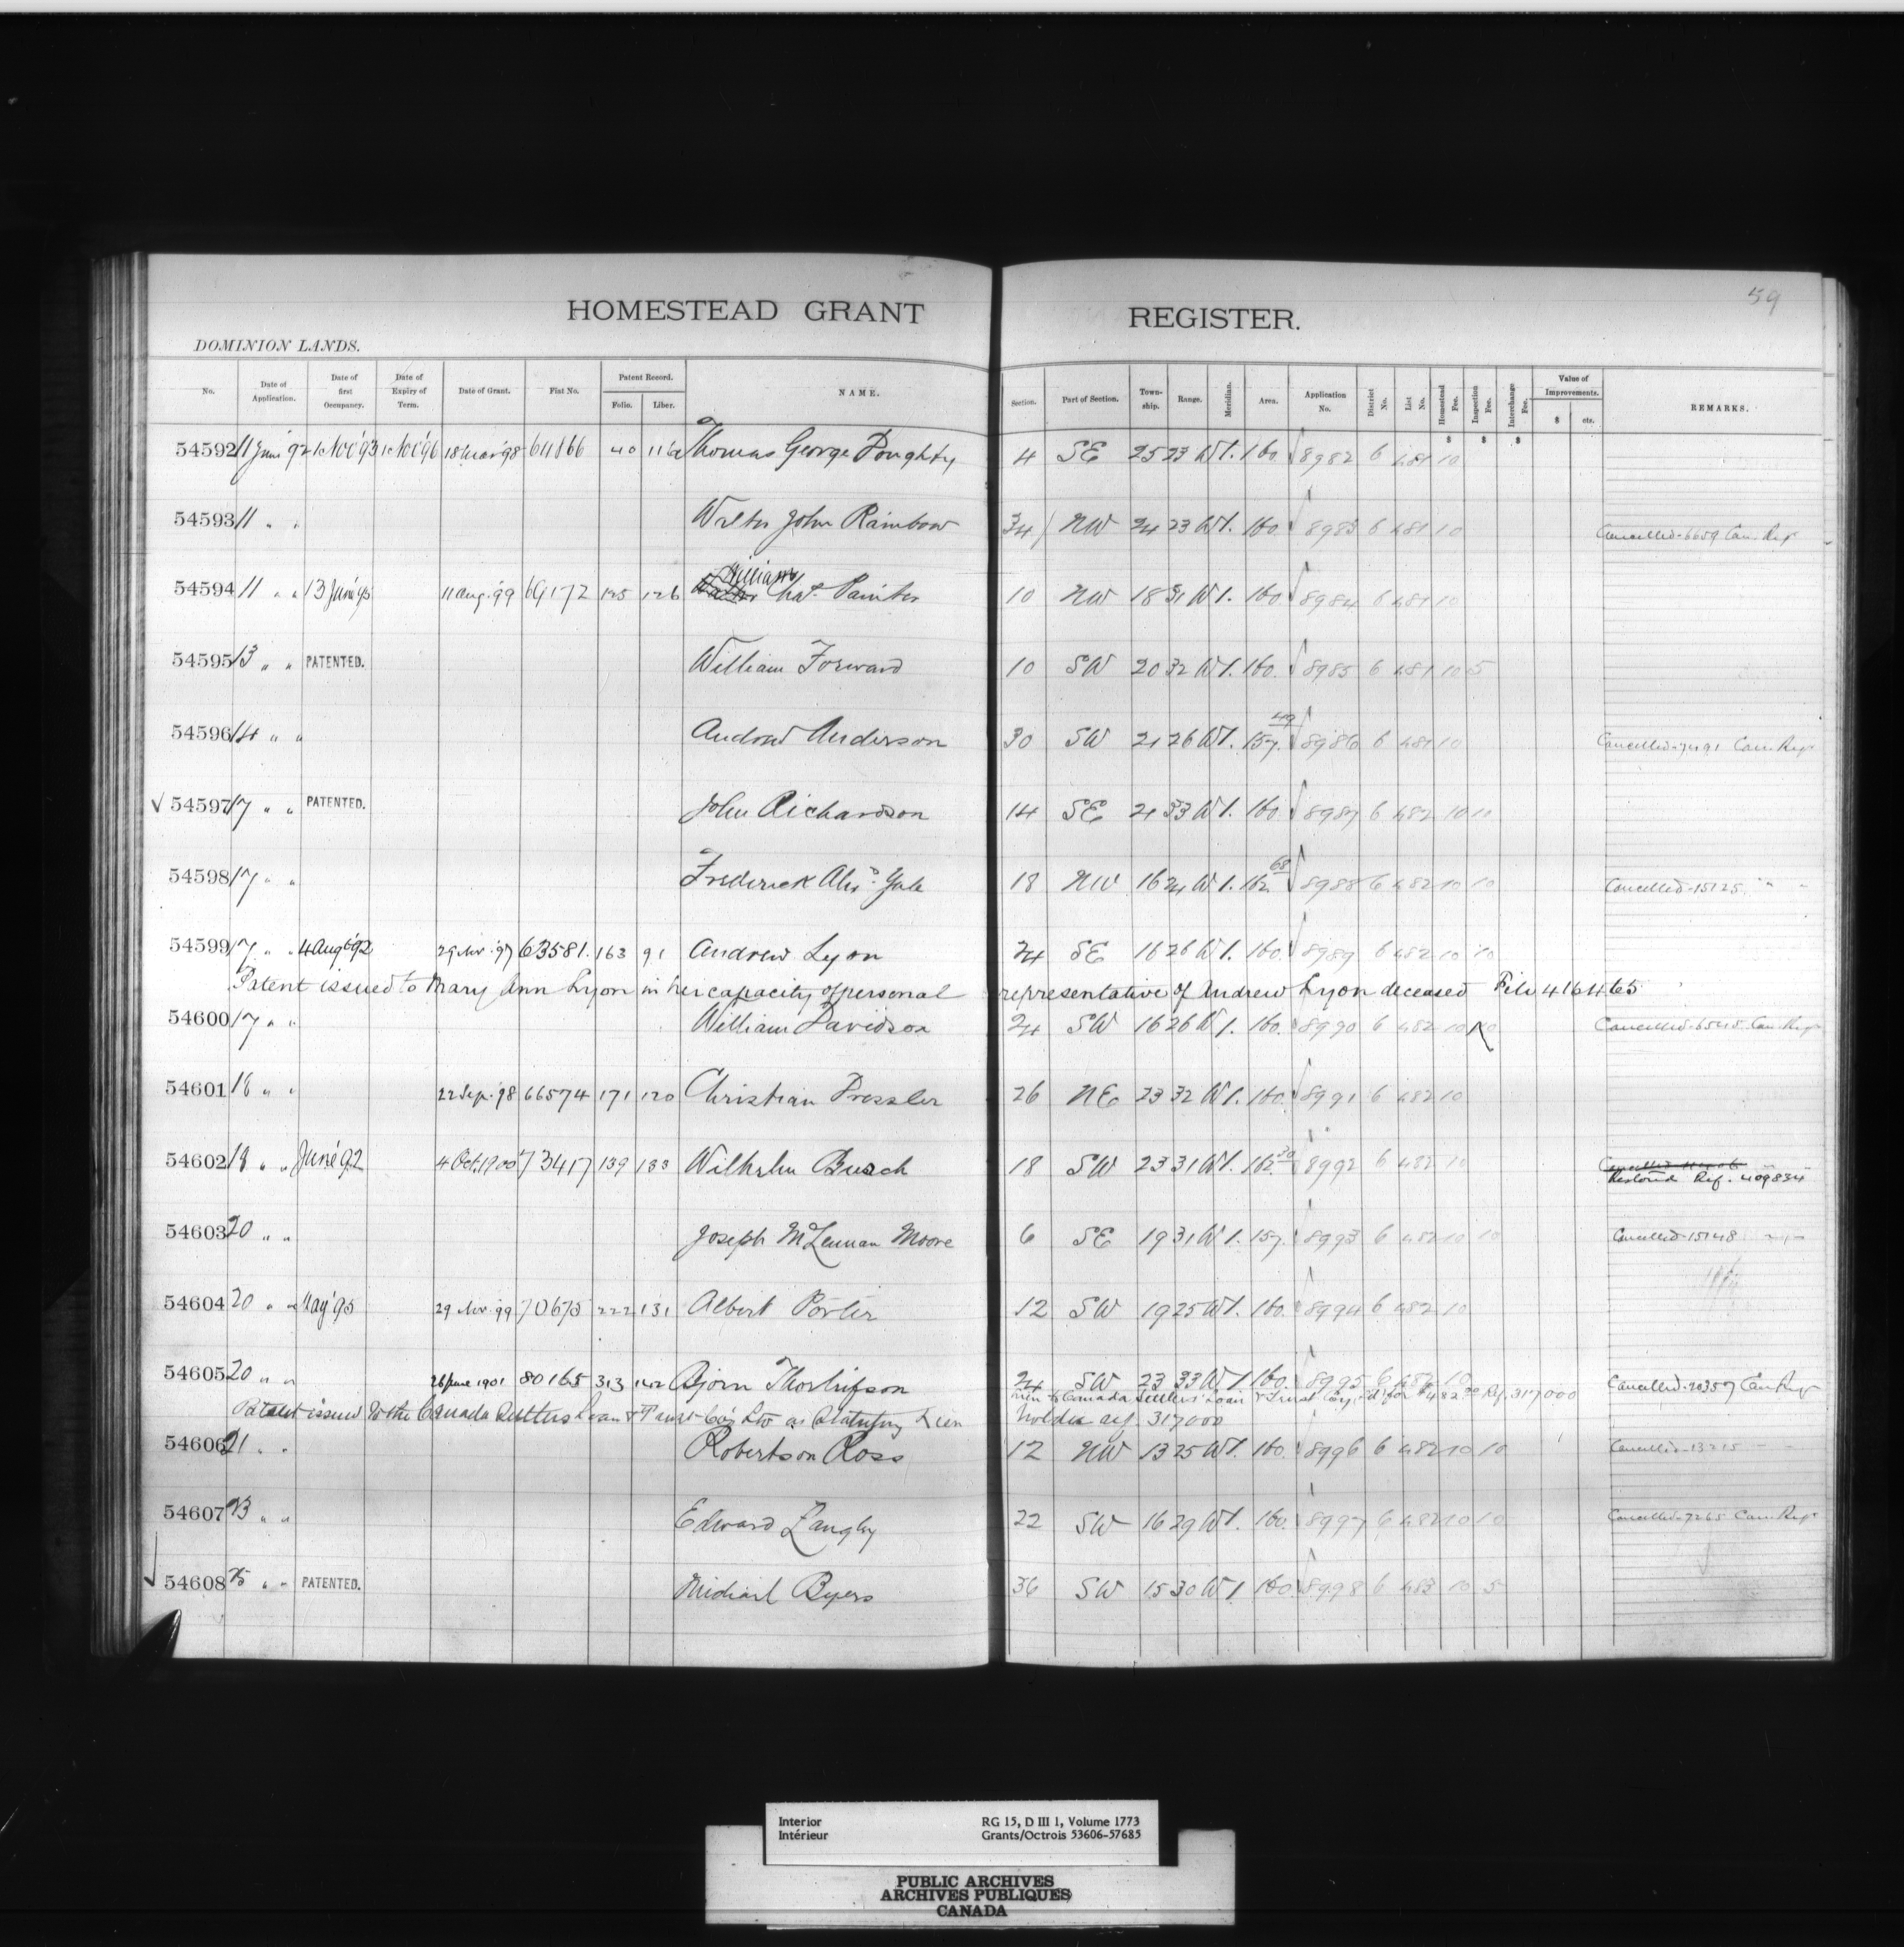 59
HOMESTEAD GRANT REGISTER.
DOMINION LANDS.
No. Date of Application. Date of first Occupancy. Date of Expiry of Term. Date of Grant. Fiat No. Patent Record. Folio. Liber. NAME. Section. Part of Section. Township. Range. Meridian. Area. Application No. District No. List No. Homestead Fee. Inspection Fee. Interchange Fee. Value of Improvements. $ cts. REMARKS.
$ $ $
54592 11 June 92 1 Nov '93 1 Nov '96 18 Mar '98 40 116 Thomas George Doughty 4 SE 25 23 W1. 160 8982 6 481 10
54593 11 " " Walter John Rainbow 34 NW 24 23 W1. 160 8983 6 481 10 Cancelled-6659 Can. Reg
54594 11 " " 13 June '95 11 Aug. '99 69172 125 126 William Chas. Painter 10 NW 18 31 W1. 160 8984 6 481 10
54595 13 " " PATENTED. William Forward 10 SW 20 32 W1. 160. 8985 6 481 10 5
54596 14 " " Andrew Anderson 30 SW 21 26 W1. 157. 49 8986 6 481 10 Cancelled Can. Reg
54597 17 " " PATENTED. John Richardson 14 SE 21 33 W1. 160 8987 6 482 10 10
54598 17 " " Frederick Alex. Yule 18 NW 16 24 W1. 162 68 8988 6 482 10 10 Cancelled-15125 " "
54599 17 " " 4 Aug '92 29 Nov. '97 63581. 163 91 Andrew Lyon 24 SE 16 26 W1. 160. 8989 6 482 10 10
Patent issued to Mary Ann Lyon in her capacity of personal representative of Andrew Lyon deceased File 416465
54600 17 " " William Davidson 24 SW 16 26 W1. 160. 8990 6 482 10 10 Cancelled-6545 Can. Reg
54601 18 " " 22 Sep. '98 66574 171 120 Christian Pressler 26 NE 23 32 W1. 160. 8991 6 482 10
54602 18 " " June '92 4 Oct. 1900 73417 139 133 Wilhelm Busch 18 SW 23 31 W1. 162. 30 8992 6 482 10 Cancelled
Restored Ref. 409834
54603 20 " " Joseph McLennan Moore 6 SE 19 31 W1. 157. 8993 6 482 10 10 Cancelled-15148 " "
54604 20 " " May '95 29 Nov. '99 70675 222 131 Albert Porter 12 SW 19 25 W1. 160. 8994 6 482 10
54605 20 " " 26 June 1901 80165 313 142 Bjorn Thorleifson 24 SW 23 33 W1 160. 8995 6 482 10 Cancelled-20359 Can Reg
Lien to Canada Settlers' Loan & Trust Coy. Ltd for $482.00 Ref. 317000
Patent issued to the Canada Settlers Loan & Trust Coy Ltd as Statutory Lien holder ref. 317000
54606 21 " " Robertson Ross 12 NW 13 25 W1. 160. 8996 6 482 10 10 Cancelled-13215
54607 23 " " Edward Langley 22 SW 16 29 W1. 160. 8997 6 482 10 10 Cancelled-7265 Can. Reg
54608 25 " " PATENTED. Michael Byers 36 SW 15 30 W1 160. 8998 6 483 10 5
Interior
Intérieur
RG 15, D III 1, Volume 1773
Grants/Octrois 53606-57685
PUBLIC ARCHIVES
ARCHIVES PUBLIQUES
CANADA